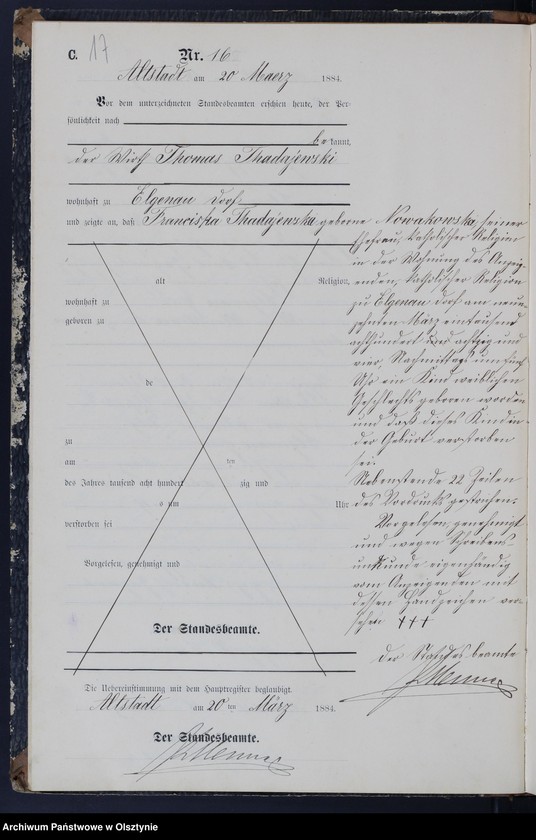 C. 17
Nr. 16
Altstadt am 20 Maerz 1884.
Vor dem unterzeichneten Standesbeamten erschien heute, der Per-
sönlichkeit nach
be kannt,
der Wirth Thomas Thadajewski
wohnhaft zu Elgenau Dorf
und zeigte an, daß Francisska Thadajewska geborene Nowakowska, seiner
Ehefrau, katholischer Religion
in der Wohnung des Anzei-
genden, katholischer Religion
zu Elgenau Dorf am neun-
zehnten März eintausend
achthundert und achtzig und
vier, Nachmittags um fünf
Uhr ein Kind weiblichen
Geschlechts geboren worden
und daß dieses Kind in
der Geburt verstorben
sei.
Nebenstehende 22 Zeilen
des Vordrucks gestrichen.
Vorgelesen, genehmigt
und wegen Schreibens
unkunde eigenhändig
vom Anzeigenden mit
dessen Handzeichen ver-
sehen +++
Der Standesbeamte
alt Religion,
wohnhaft zu
geboren zu
de
zu
am ten
des Jahres tausend acht hundert zig und
s um Uhr
verstorben sei
Vorgelesen, genehmigt und
Der Standesbeamte.
Die Uebereinstimmung mit dem Hauptregister beglaubigt.
Altstadt am 20 ten März 1884.
Der Standesbeamte.
Archiwum Państwowe w Olsztynie